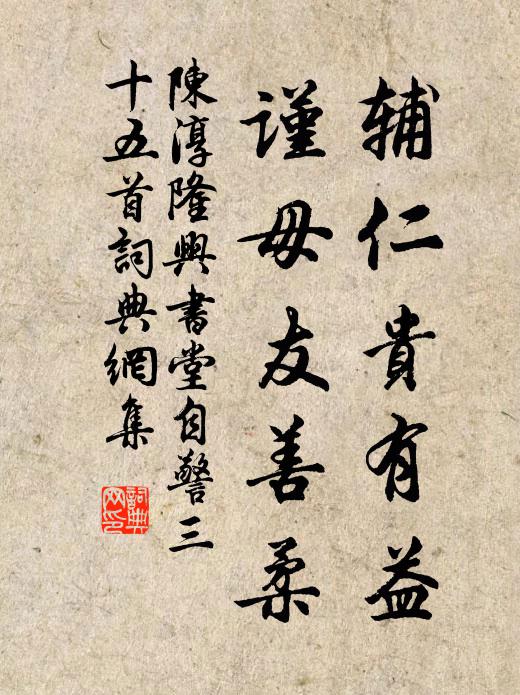 辅仁貴有益
謹毋友善柔
陳淳隆興書堂自警三
十五首詞典網集
詞典
网印